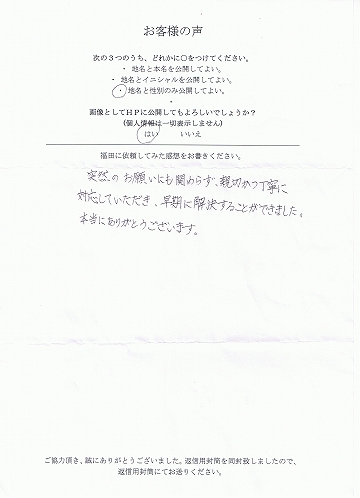 お客様の声
次の3つのうち、どれかに○をつけてください。
・地名と本名を公開してよい。
・地名とイニシャルを公開してよい。
・地名と性別のみ公開してよい。
・
画像としてHPに公開してもよろしいでしょうか?
(個人情報は一切表示しません)
はい いいえ
福田に依頼してみた感想をお書きください。
突然のお願いにも関わらず、親切かつ丁寧に
対応していただき、早期に解決することができました。
本当にありがとうございます。
ご協力頂き、誠にありがとうございました。返信用封筒を同封致しましたので、
返信用封筒にてお送りください。